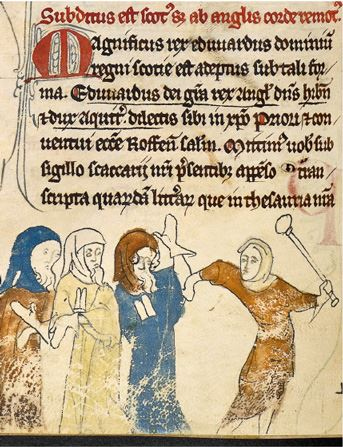 Subditus est scot' s; ab anglis corde remot'.
Magnificus rex edwardus dominiũ
regni scotie est adeptus sub tali for
ma. Edwardus dei grã rex Angl' dñs hibñ
⁊ dux aquit' dilectis sibi in xp̃o Priori ⁊ con
uentui ecc̃e Roffeñ sal'm. Mittim' uob' sub
sigillo scaccarij nr̃i p̃sentib' app̃enso Tran
scripta quarũdã litt'ar' que in thesauria nr̃a